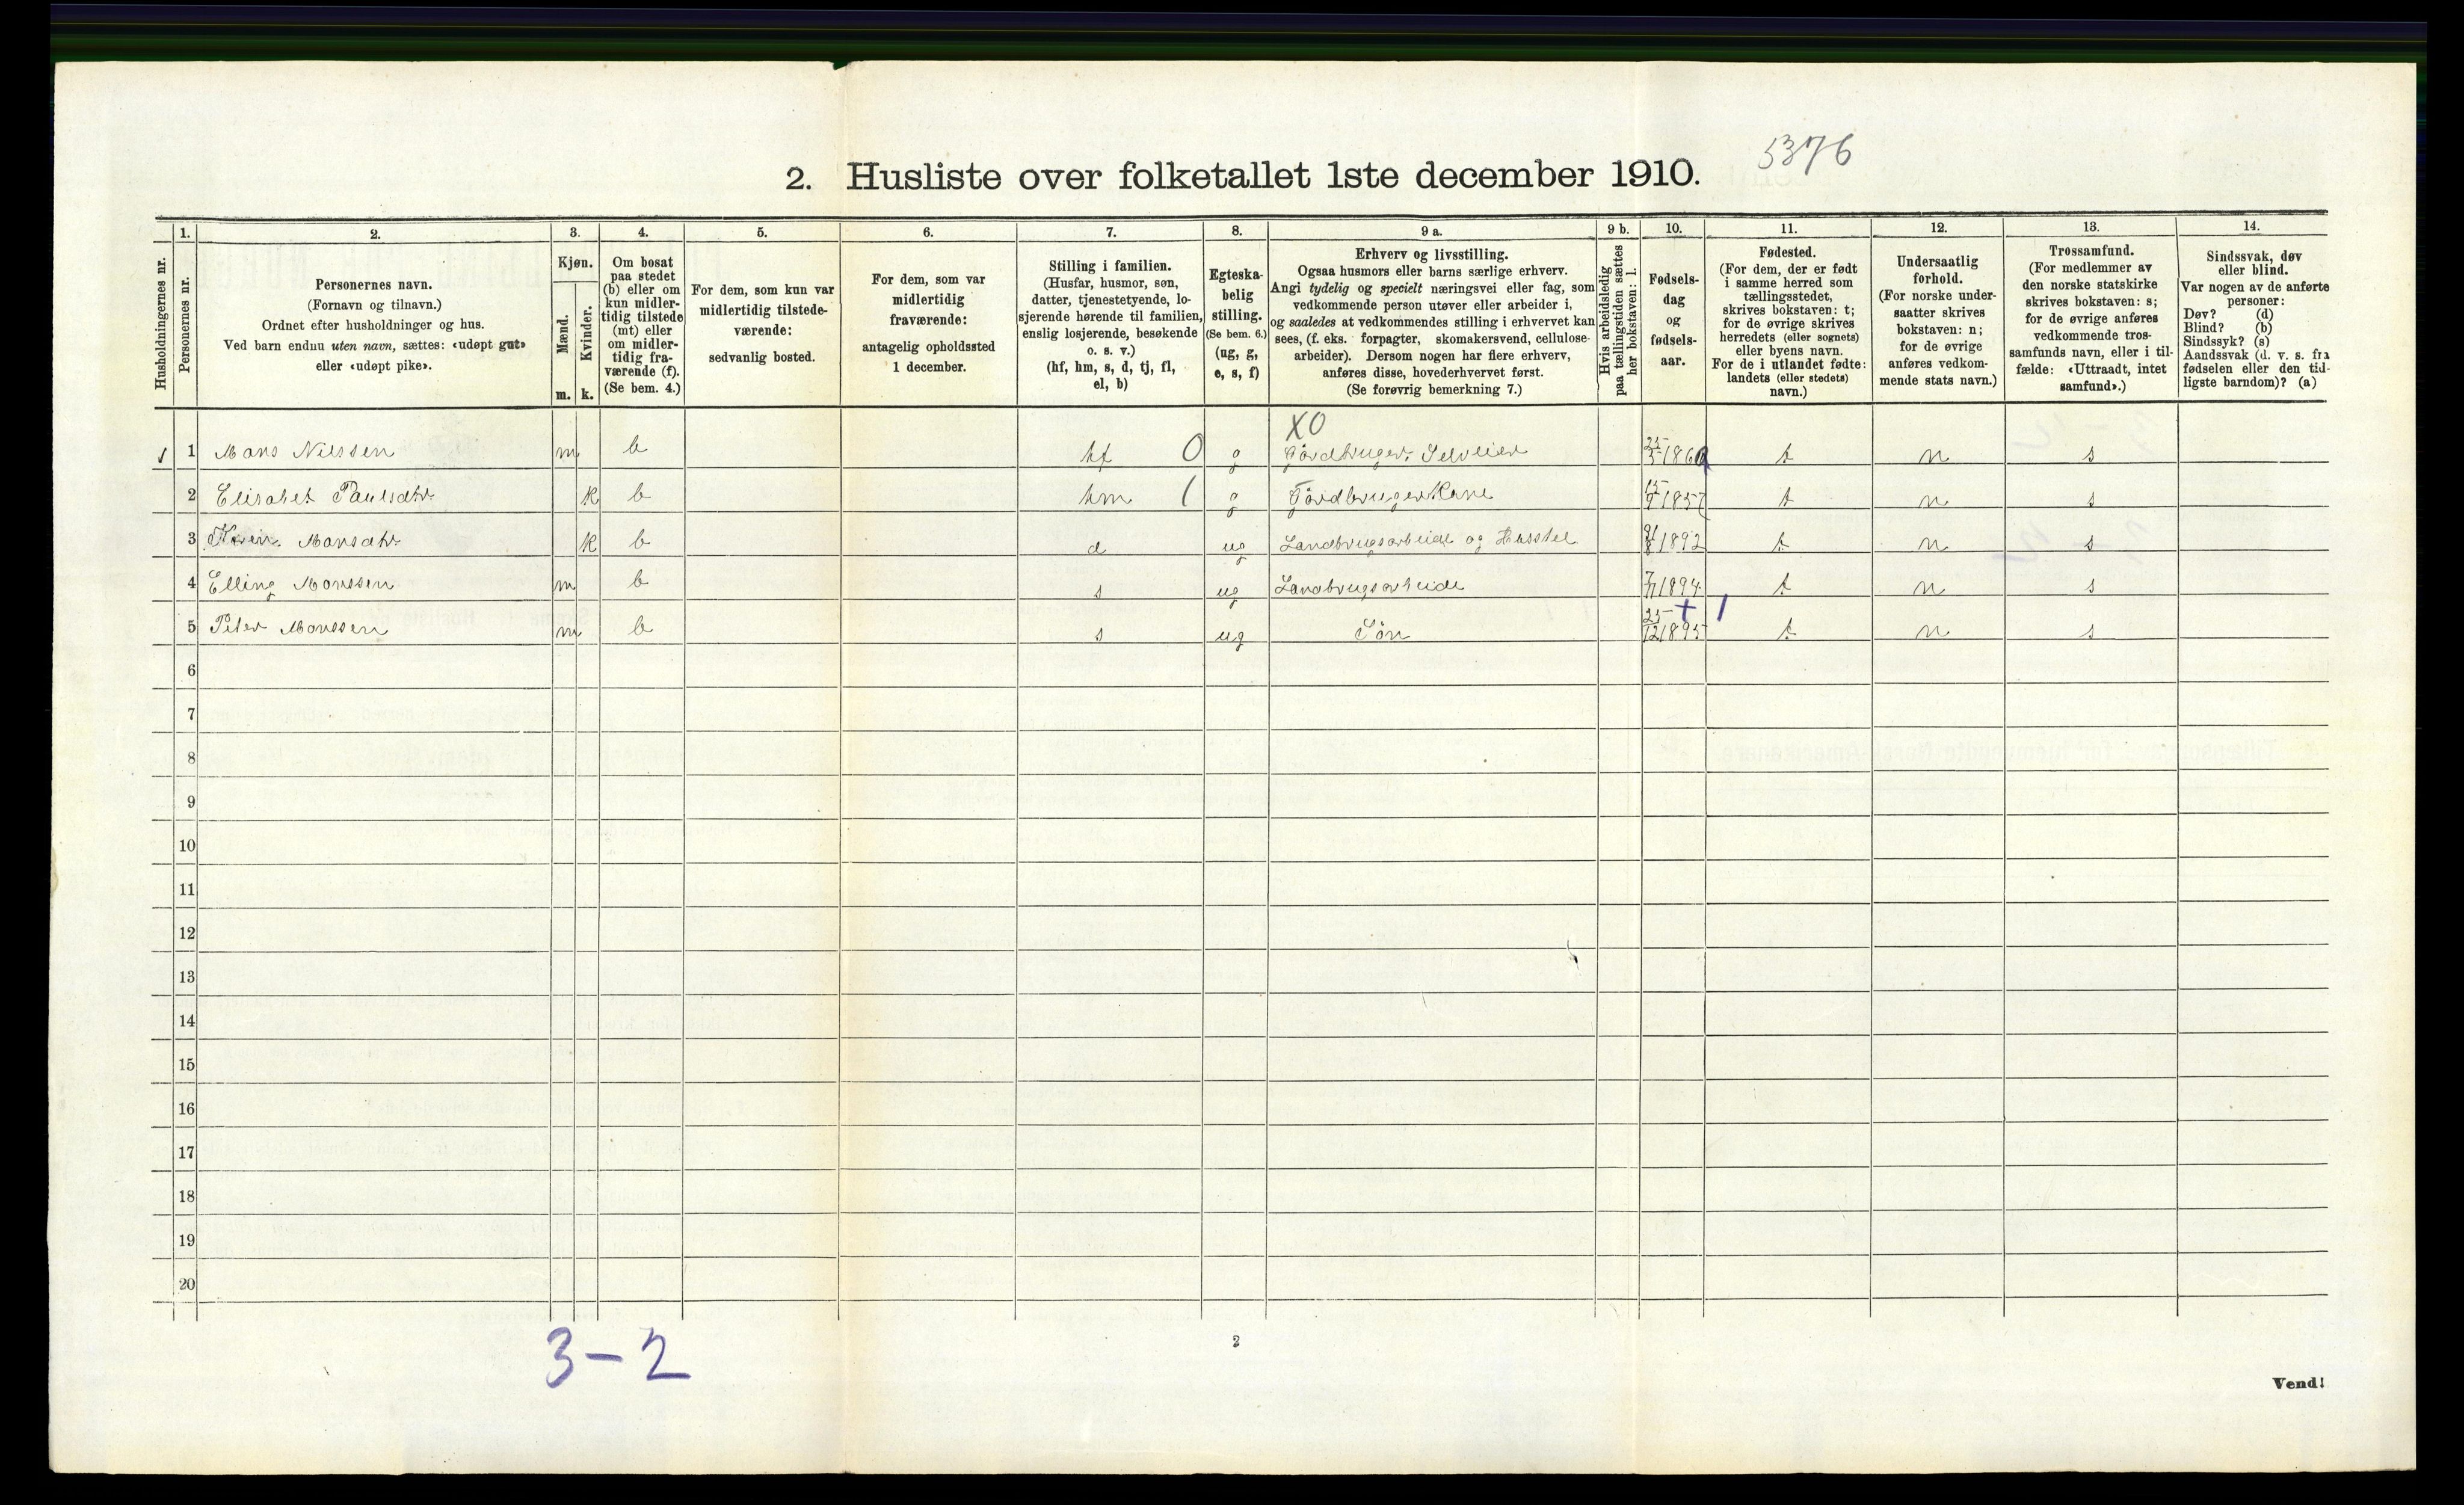 5376
2. Husliste over folketallet 1ste december 1910.
Husholdningernes nr.
1. Personernes nr.
2. Personernes navn.
(Fornavn og tilnavn.)
Ordnet efter husholdninger og hus.
Ved barn endnu uten navn, sættes: «udøpt gut»
eller «udøpt pike».
3. Kjøn.
Mænd. m.
Kvinder. k.
4. Om bosat
paa stedet
(b) eller om
kun midler-
tidig tilstede
(mt) eller
om midler-
tidig fra-
værende (f).
(Se bem. 4.)
5. For dem, som kun var
midlertidig tilstede-
værende:
sedvanlig bosted.
6. For dem, som var
midlertidig
fraværende:
antagelig opholdssted
1 december.
7. Stilling i familien.
(Husfar, husmor, søn,
datter, tjenestetyende, lo-
sjerende hørende til familien,
enslig losjerende, besøkende
o. s. v.)
(hf, hm, s, d, tj, fl,
el, b)
8. Egteska-
belig
stilling.
(Se bem. 6.)
(ug, g,
e, s, f)
9 a. Erhverv og livsstilling.
Ogsaa husmors eller barns særlige erhverv.
Angi tydelig og specielt næringsvei eller fag, som
vedkommende person utøver eller arbeider i,
og saaledes at vedkommendes stilling i erhvervet kan
sees, (f. eks. forpagter, skomakersvend, cellulose-
arbeider). Dersom nogen har flere erhverv,
anføres disse, hovederhvervet først.
(Se forøvrig bemerkning 7.)
9 b. Hvis arbeidsledig
paa tællingstiden sættes
her bokstaven: l.
10. Fødsels-
dag
og
fødsels-
aar.
11. Fødested.
(For dem, der er født
i samme herred som
tællingsstedet,
skrives bokstaven: t;
for de øvrige skrives
herredets (eller sognets)
eller byens navn.
For de i utlandet fødte:
landets (eller stedets)
navn.)
12. Undersaatlig
forhold.
(For norske under-
saatter skrives
bokstaven: n;
for de øvrige
anføres vedkom-
mende stats navn.)
13. Trossamfund.
(For medlemmer av
den norske statskirke
skrives bokstaven: s;
for de øvrige anføres
vedkommende tros-
samfunds navn, eller i til-
fælde: «Uttraadt, intet
samfund».)
14. Sindssvak, døv
eller blind.
Var nogen av de anførte
personer:
Døv? (d)
Blind? (b)
Sindssyk? (s)
Aandssvak (d. v. s. fra
fødselen eller den tid-
ligste barndom)? (a)
XO
1 Mons Nilssen m b hf 0 g Jordbruger Selveier 1860 t n s
2 Elisabet Paulsdtr k b hm 1 g Jordbruger Kone 1857 t n s
3 Monsdtr k b d ug Landbrugsarbeide og Husstel 1892 t n s
4 Elling Monssen m b s ug Landbrugsarbeide 1894 t n s
5 Peter Monssen m b s ug Søn 25/12 1895 t n s
6
7
8
9
10
11
12
13
14
15
16
17
18
19
20
3 – 2
2
Vend!